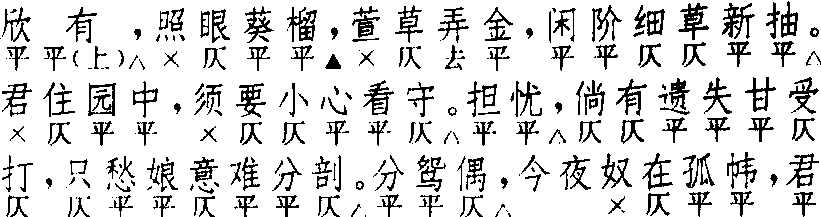 欣有,照眼葵榴,萱草弄金,闲阶细草新抽。
平平(上)△×仄平平▲×仄去平平平仄仄平平△
君住园中,须要小心看守。担忧,倘有遗失甘受
×仄平平×仄仄平平仄△平平△仄仄平平平仄
打,只愁娘意难分剖。分鸳偶,今夜奴在孤帏,君
仄仄平平仄平平仄△平平仄△×仄平平